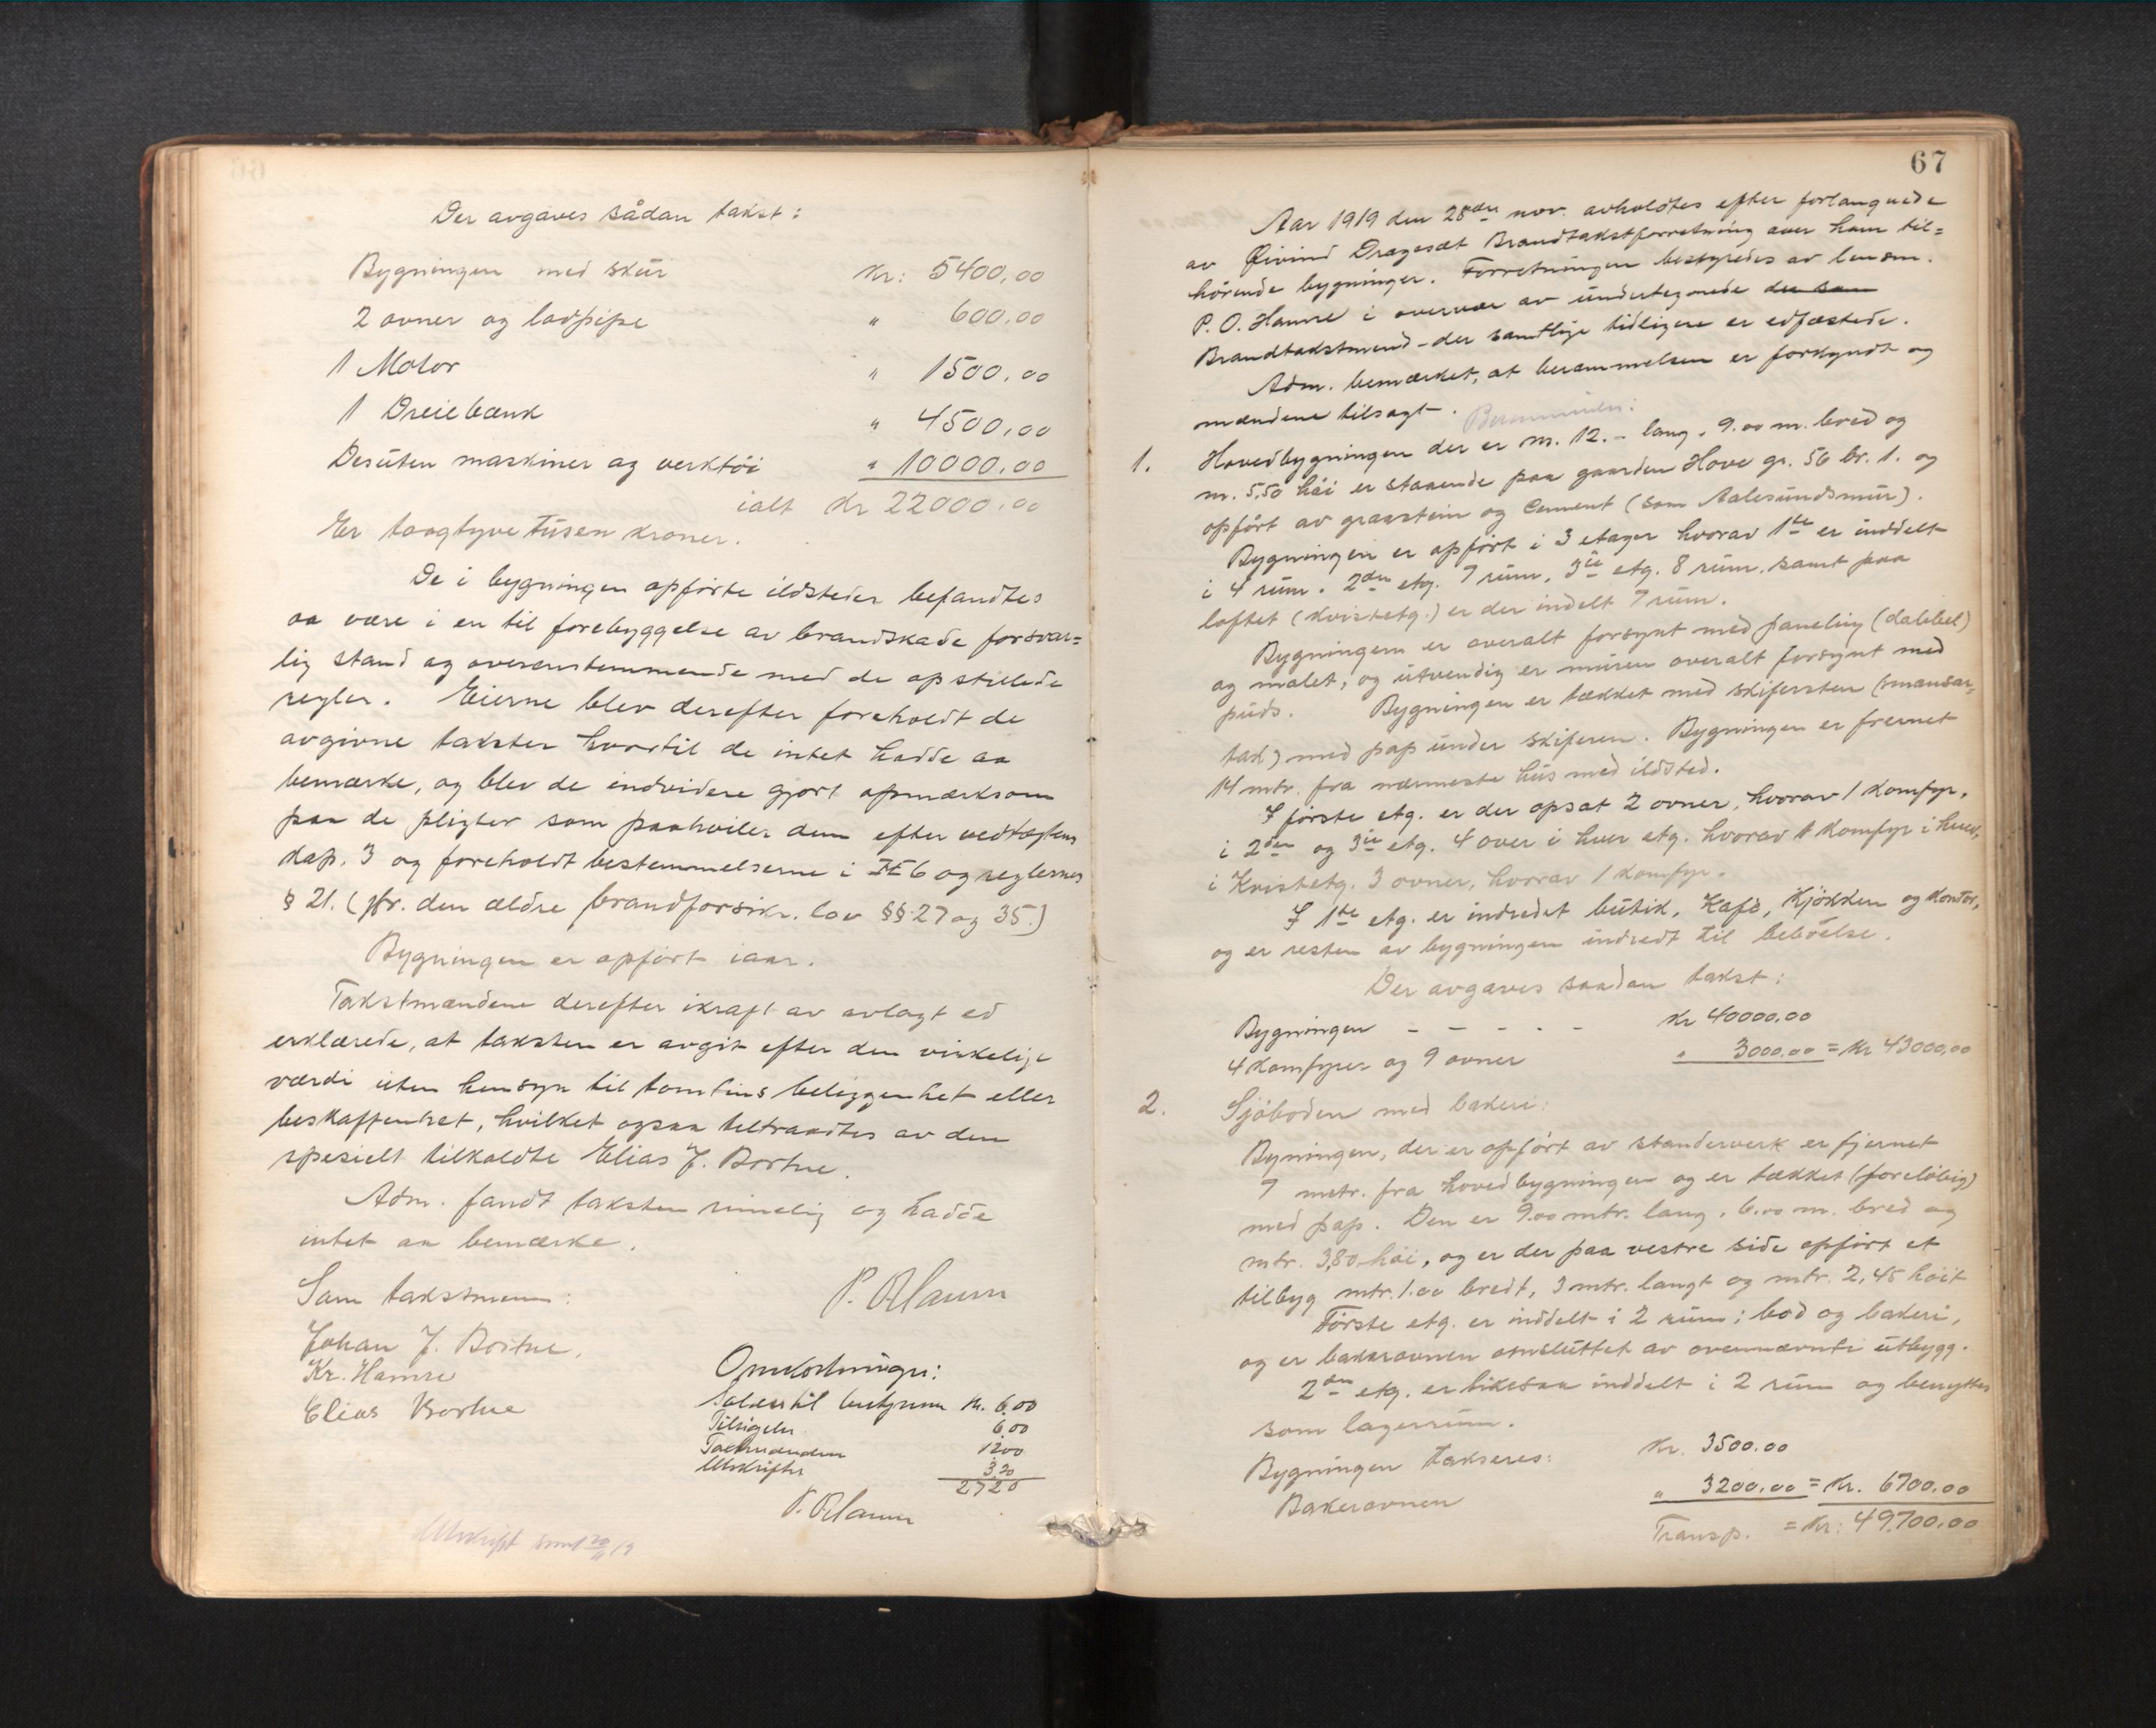 Der avgaves sådan takst:
Bygningen med skur kr: 5400,00
2 ovner og lodpipe " 600,00
1 Motor " 1500,00
1 Dreiebænk " 4500,00
Desuten maskiner og verktöi " 10000,00
ialt kr 22000,00
Er toogtyve tusen kroner.
De i bygningen opförte ildsteder befandtes
aa være i en til forebyggelse av brandskade forsvar=
lig stand og overenstemmende med de opstillede
regler. Eierne blev derefter foreholdt de
avgivne takster hvortil de intet hadde aa
bemærke, og blev de endvidere gjort opmærksom
paa de pligter som paahviler dem efter vedtægtens
kap. 3 og foreholdt bestemmelserne i 6 og reglernes
§ 21. (jfr. den ældre brandforsikr. lov §§ 27 og 35.)
Bygningen er opfört iaar.
Takstmændene derefter ikraft av avlagt ed
erklærede, at taksten er avgit efter den virkelige
værdi uten hensyn til tomtens beliggenhet eller
beskaffenhet, hvilket ogsaa tiltraadtes av den
spesielt tilkaldte Elias J. Bortne.
Adm. fandt taksten rimelig og hadde
intet aa bemærke.
Som takstmenn: P. O Hamre
Johan J. Bortne,
Kr. Hamre
Elias Bortne
Omkostninger:
til bestyreren kr. 6.00
Tilsigelse 6.00
Takstmændene 12.00
Utskrifter 3.20
27 20
P. O Hamre
Utskrift sendt 20/11 19
67
Aar 1919 den 28de nov. avholdtes efter forlangnede
av Öivind Dragesæt Brandtakstforretning over ham til=
hörende bygninger. Forretningen bestyredes av lensm.
P. O. Hamre i overvær av undertegnede der som
Brandtakstmend - der samtlige tidligere er edfæstede.
Adm. bemærket, at berammelsen er forkyndt og
mændene tilsagt.
1. Hovedbygningen der er m. 12.- lang, 9.00 m. bred og
m. 5,50 höi er staaende paa gaarden Hove gr. 56 br. 1. og
opfört av graastein og Cement (som Aalesundsmur).
Bygningen er opfört i 3 etager hvorav 1ste er inddelt
i 4 rum. 2den etg. 7 rum, 3die etg. 8 rum. samt paa
loftet (kvistetg.) er der indelt 7 rum.
Bygningen er overalt forsynt med paneling (dobbel)
og malet, og utvendig er muren overalt forsynt med
puds. Bygningen er tækket med skifersten (mansar=
tak) med pap under skiferen. Bygningen er fjernet
14 mtr. fra nærmeste hus med ildsted.
I förste etg. er der opsat 2 ovner, hvorav 1 komfyr.
i 2den og 3die etg. 4 over i hver etg. hvorav 1 komfyr i hver,
i Kvistetg. 3 ovner, hvorav 1 komfyr.
I 1ste etg. er indredet butik, Kafè, Kjökken og kontor,
og er resten av bygningen indredt til beboelse.
Der avgaves saadan takst:
Bygningen - - - - - kr 40000,00
4 komfyrer og 9 ovner " 3000,00 = Kr 43000,00
2. Sjöboden med bakeri:
Bymingen, der er opfört av standerverk er fjernet
7 metr. fra hovedbygningen og er tækket (foreløbig)
med pap. Den er 9.00 mtr. lang, 6.00 m. bred og
mtr. 3,80 höi, og er der paa vestre side opfört et
tilbyg mtr. 1.00 bredt, 3 mtr. langt og mtr. 2,45 höit
Förste etg. er inddelt i 2 rum; bod og bakeri,
og er bakerovnen omsluttet av ovennævnte utbygg.
2den etg. er likesaa inddelt i 2 rum og benyttes
som lagerrum.
Bygningen takseres: Kr. 3500.00
Bakerovnen " 3200,00 = Kr. 6700,00
Transp. = Kr: 49.700,00